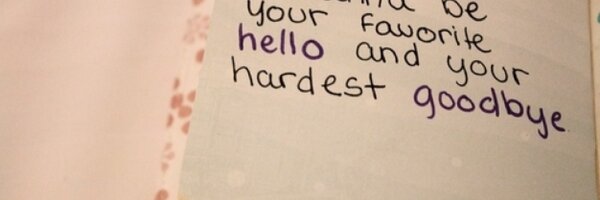 be
your favorite
hello and your
hardest goodbye